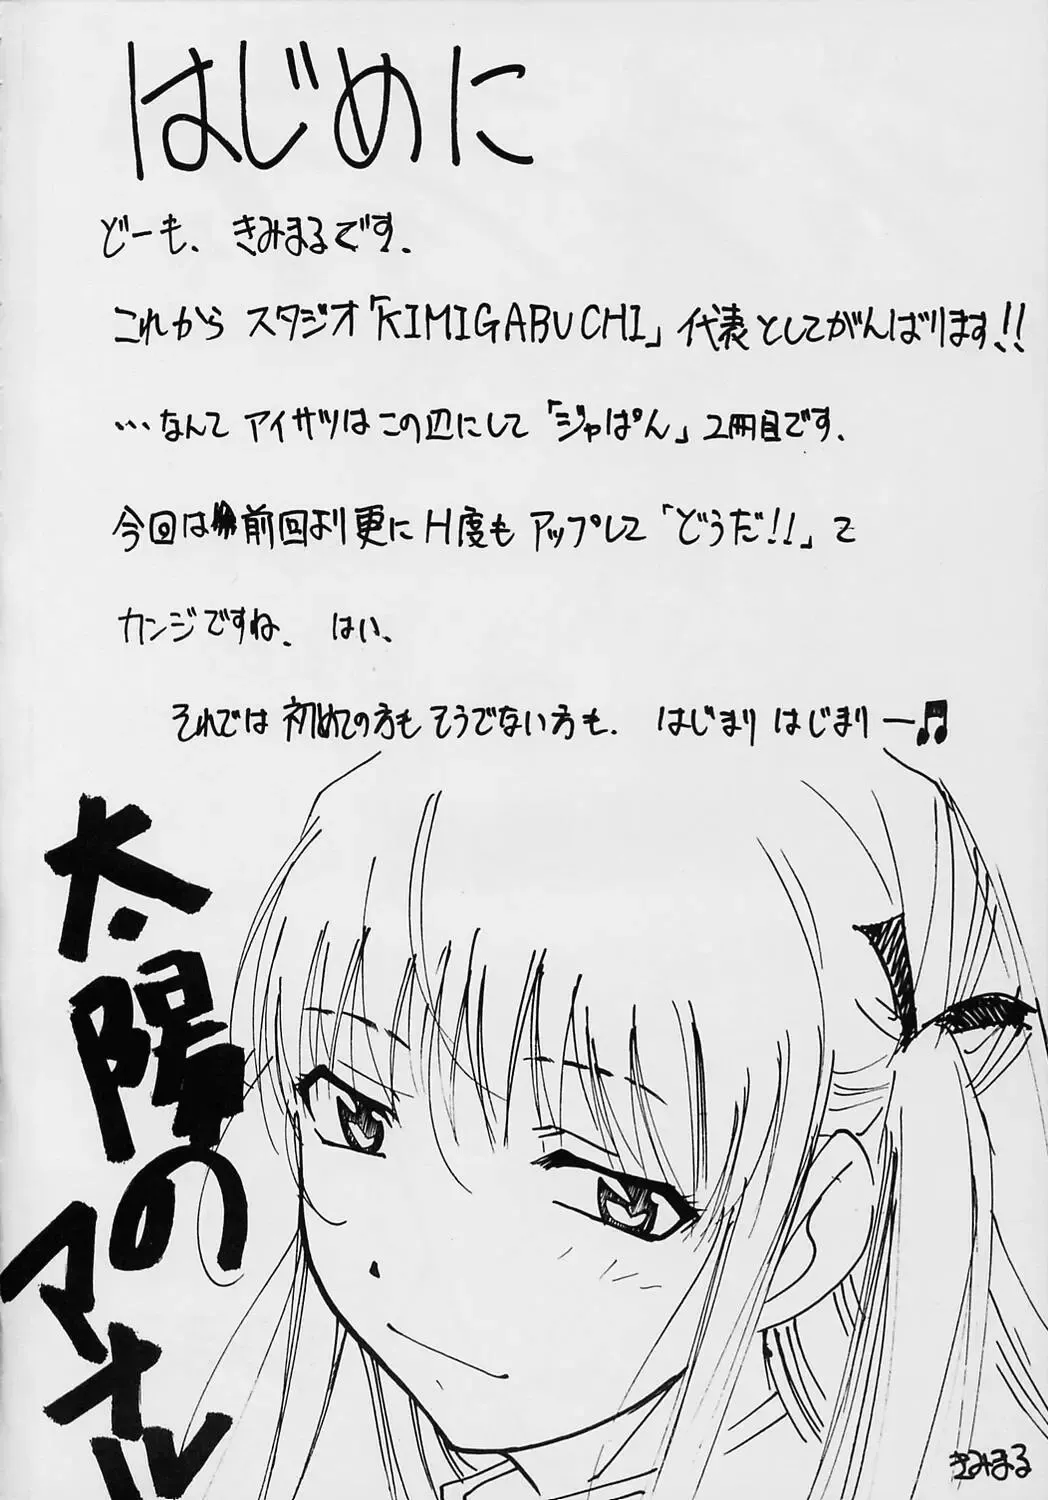 はじめに
どーも、きみまるです。
これから スタジオ「KIMIGABUCHI」代表としてがんばります!!
…なんて アイサツはこの辺にして「ジャぱん」2冊目です。
今回は前回より更に H度も アップして「どうだ!!」て
カンジですね。 はい、
それでは 初めての方も そうでない方も、 はじまり はじまりー♫
太陽の
マオル
きみまる